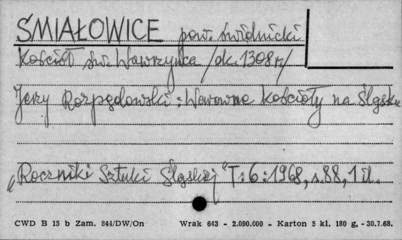 ŚMIAŁOWICE pow. świdnicki
Kościół św. Wawrzyńca /ok. 1308 r/
Jerzy Rozpędowski: Warowne kościoły na Śląsku
„Roczniki Sztuki Śląskiej" T: 6: 1968, s. 88, 1 il.
CWD B 15 b Zam. 844/DW/On Wrak 643 - 2.090.000 - Karton 5 kl. 180 g, - 30.7.68.